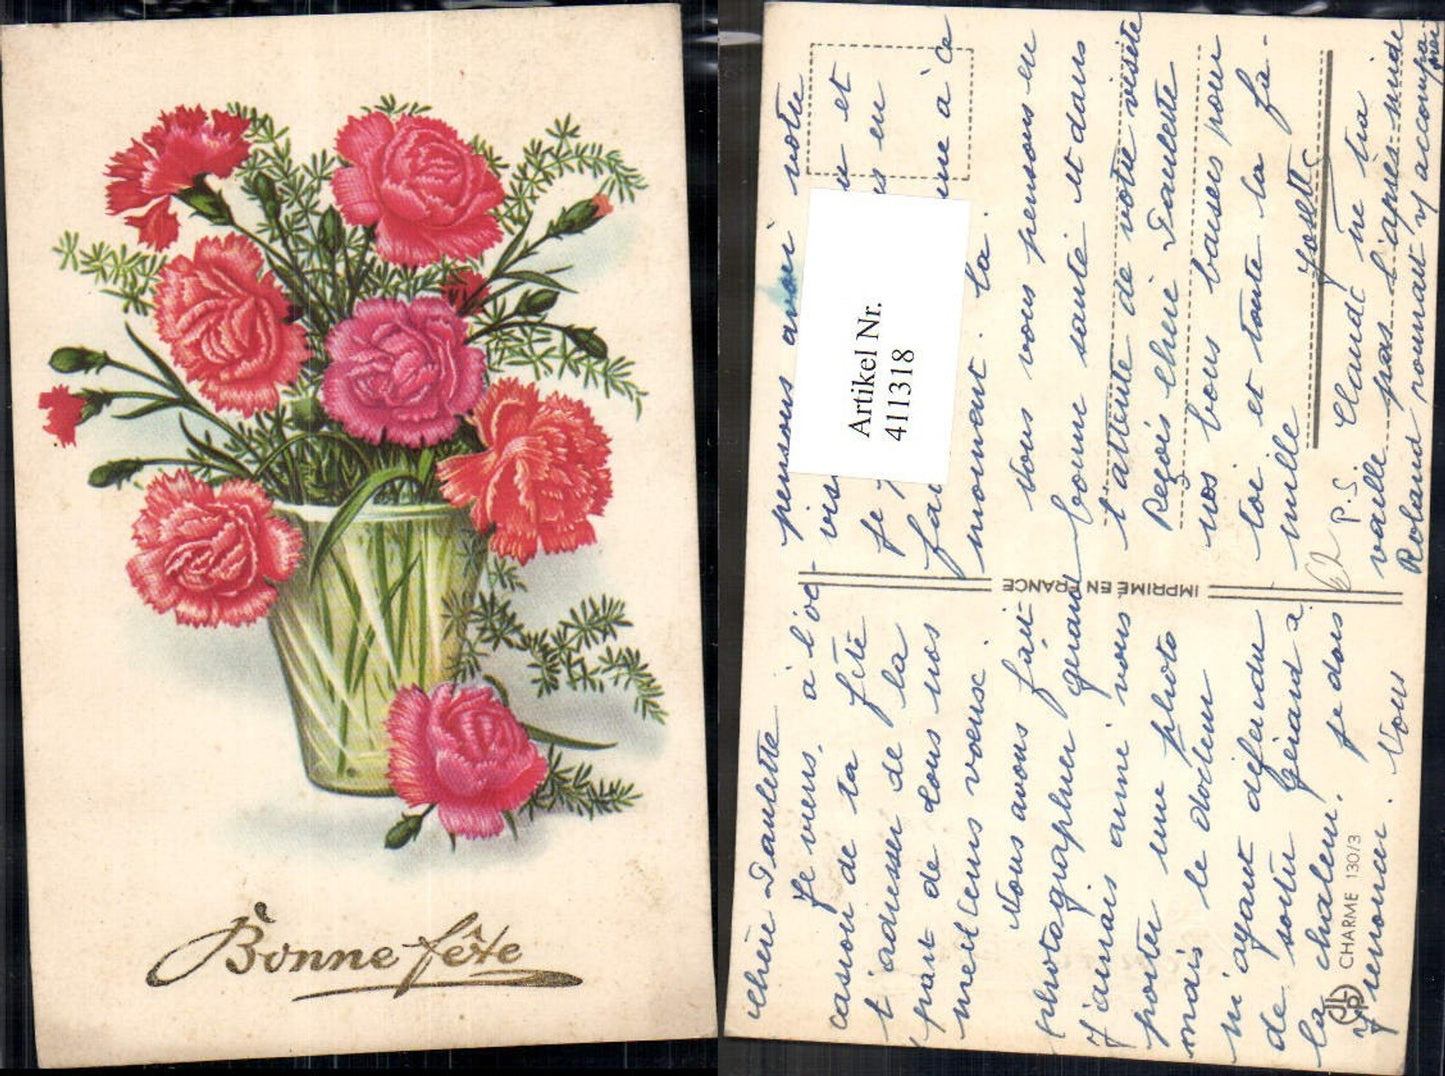 Bonne fête
chère Paulette
Je viens, à l'oc-
casion de ta fête
t'adresser de la
part de tous nos
meilleurs voeux.
Nous avons fait
photographier Gérard
J'aurais aimé vous
porter une photo
mais le docteur
m'ayant défendu
de sortir Gérard à
la chaleur. je dois
y renoncer. Nous
pensons avoir votre
vis et
Je en
fai à ce
moment. là.
Nous vous pensons en
bonne santé et dans
l'attente de votre visite
Reçois chère Paulette
nos bons baisers pour
toi et toute la fa-
mille
Yolette
P.S. Claude ne tra
vaille pas l'après-midi
Roland pourrait y accompa-
gner
IMPRIMÉ EN FRANCE
CHARME 130/3
Artikel Nr.
411318